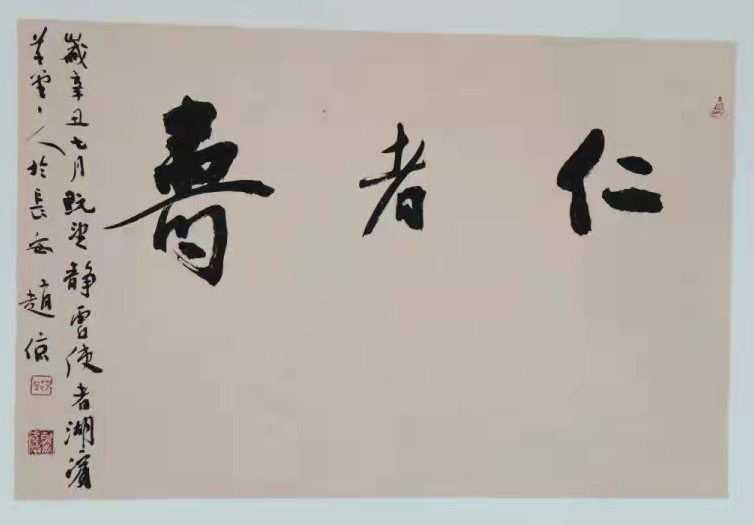 仁者壽
歲辛丑七月既望靜雪使者湖濱
草堂主人於長安趙倞